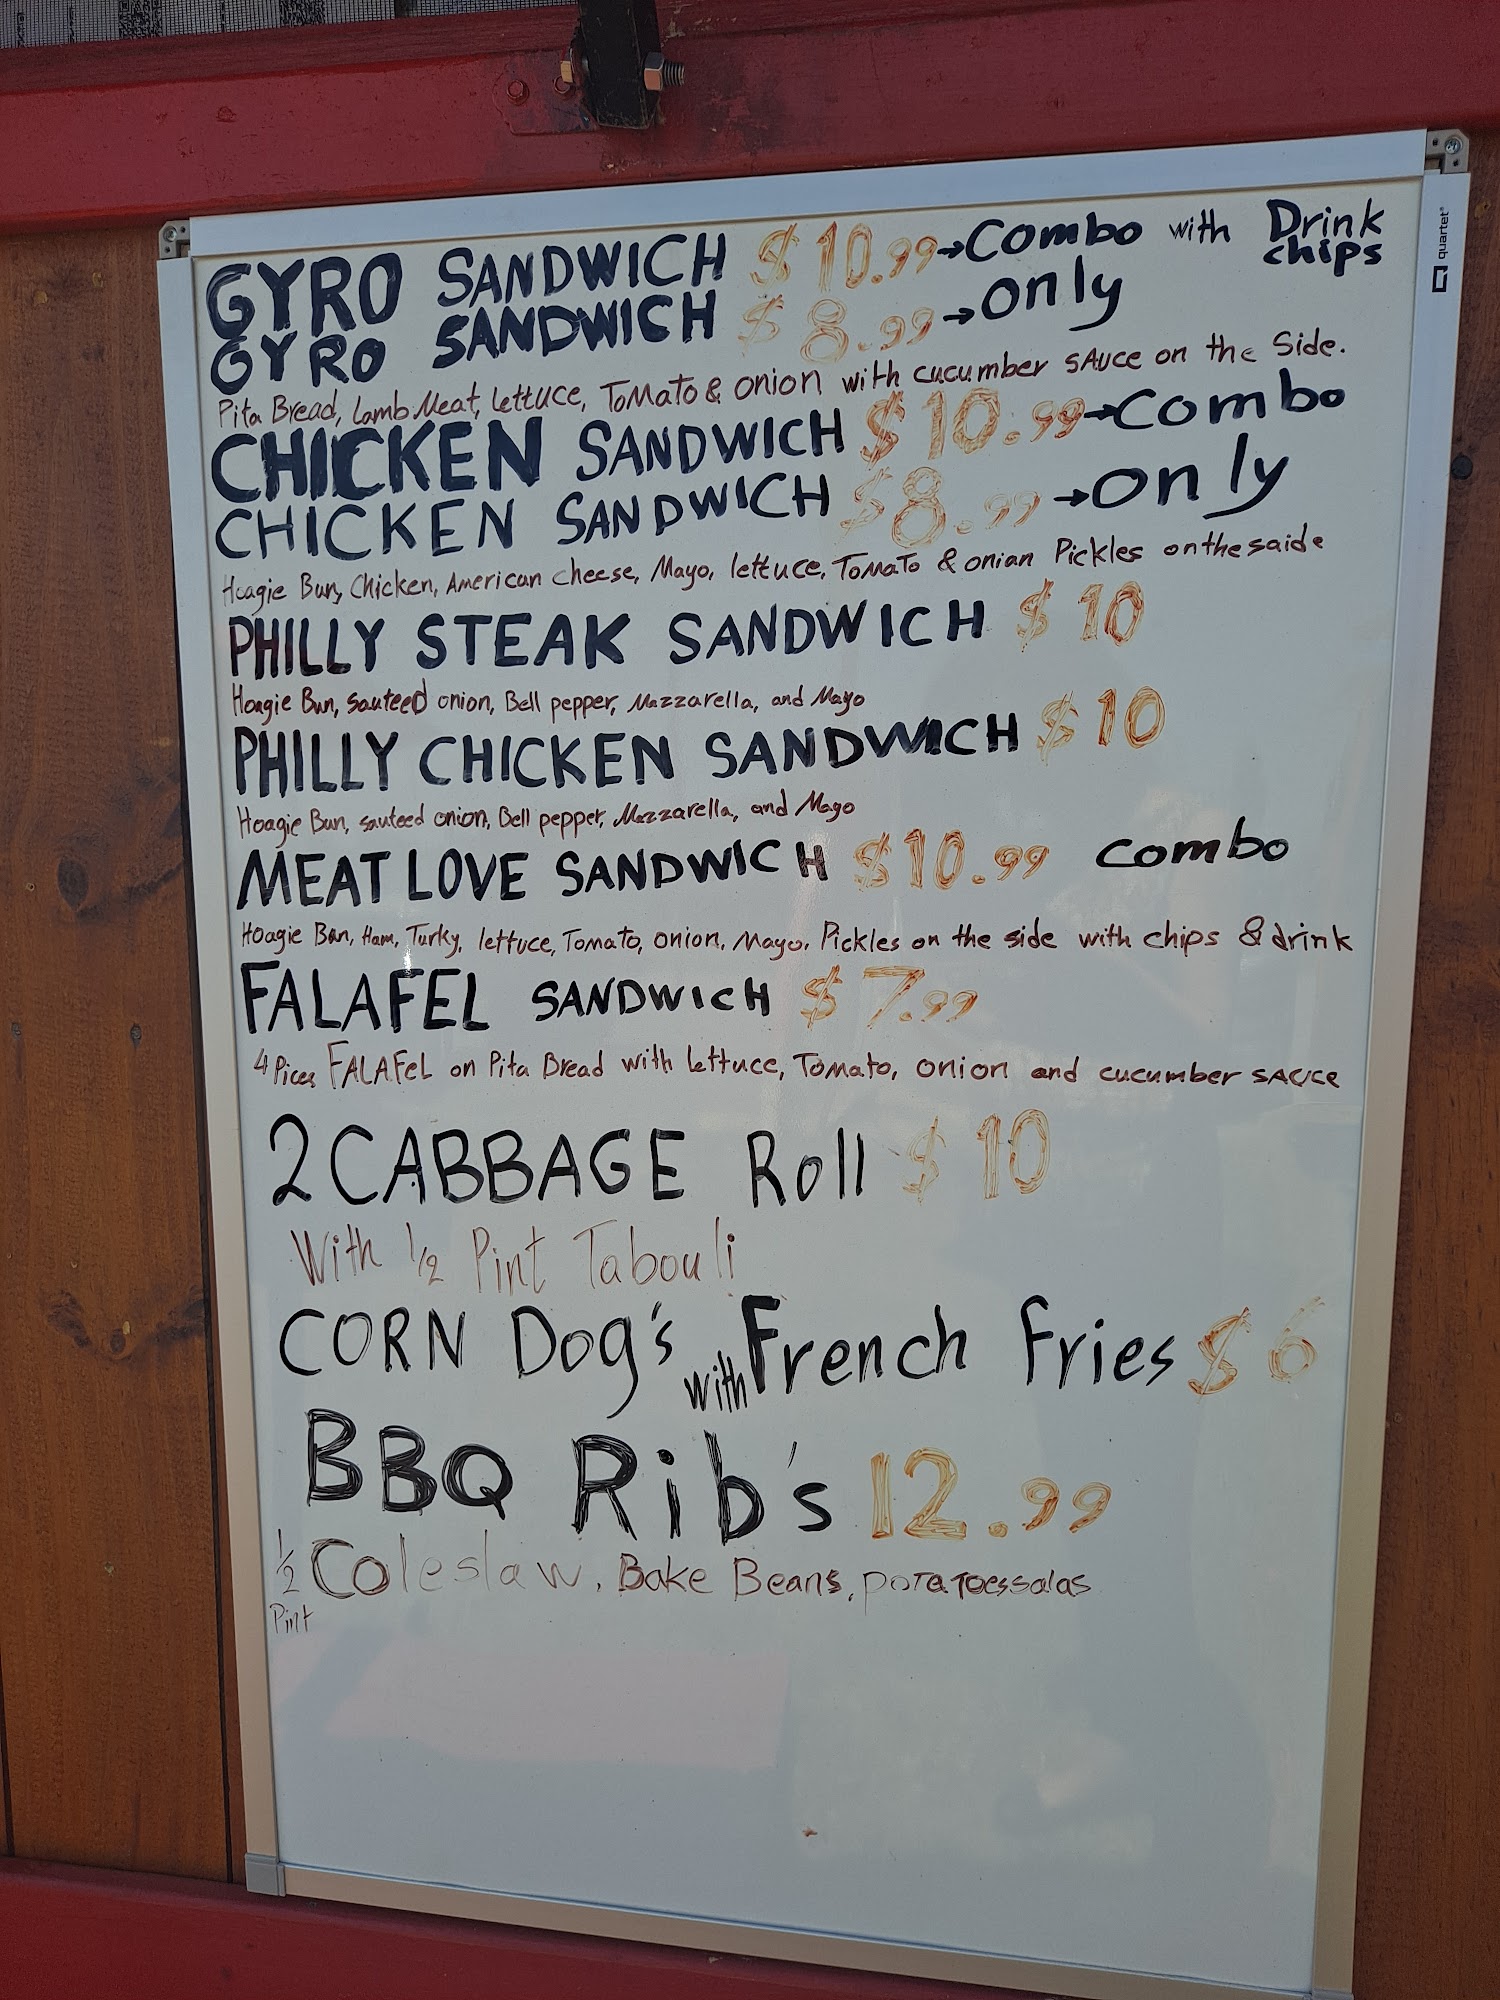 GYRO SANDWICH $10.99→Combo with Drink chips
GYRO SANDWICH $8.99→only
Pita Bread, Lamb Meat, lettuce, ToMaTo & onion with cucumber sauce on the Side.
CHICKEN SANDWICH $10.99→Combo
CHICKEN SANDWICH $8.99→only
Hoagie Bun, Chicken, American cheese, Mayo, lettuce, ToMaTo & onian Pickles on the saide
PHILLY STEAK SANDWICH $10
Hoagie Bun, sauteed onion, Bell pepper, Mazzarella, and Mayo
PHILLY CHICKEN SANDWICH $10
Hoagie Bun, sauteed onion, Bell pepper, Mazzarella, and Mayo
MEAT LOVE SANDWICH $10.99 combo
Hoagie Bun, Ham, Turky, lettuce, Tomato, onion, Mayo, Pickles on the side with chips & drink
FALAFEL SANDWICH $7.99
4 Pices FALAFEL on Pita Bread with lettuce, Tomato, onion and cucumber sauce
2 CABBAGE Roll $10
With 1/2 Pint Tabouli
CORN Dog's with French Fries $6
BBQ Rib's 12.99
1/2 Pint Coleslaw, Bake Beans, potatoessalas
quartet